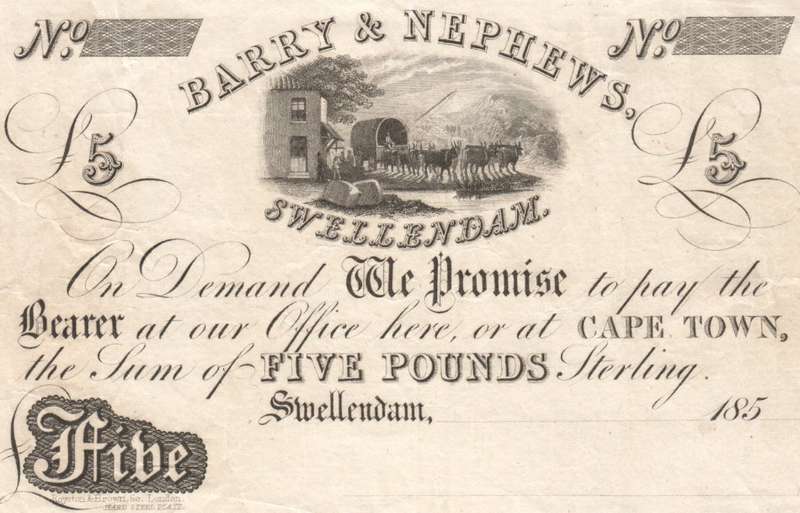 No
No
BARRY & NEPHEWS,
£5
£5
SWELLENDAM.
On Demand We Promise to pay the
Bearer at our Office here, or at CAPE TOWN,
the Sum of FIVE POUNDS Sterling.
Swellendam, 185
Five
Royston & Brown, London.
HARD STEEL PLATE.